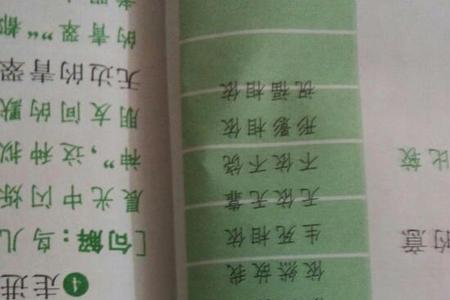 的意
比较
依然故我
生死相依
无依无靠
不依不饶
形影相依
祝福相依
走进
[句解：鸟儿
晨光中闪烁
神”，这种拟
朋友间的默
无边的青翠
的青翠